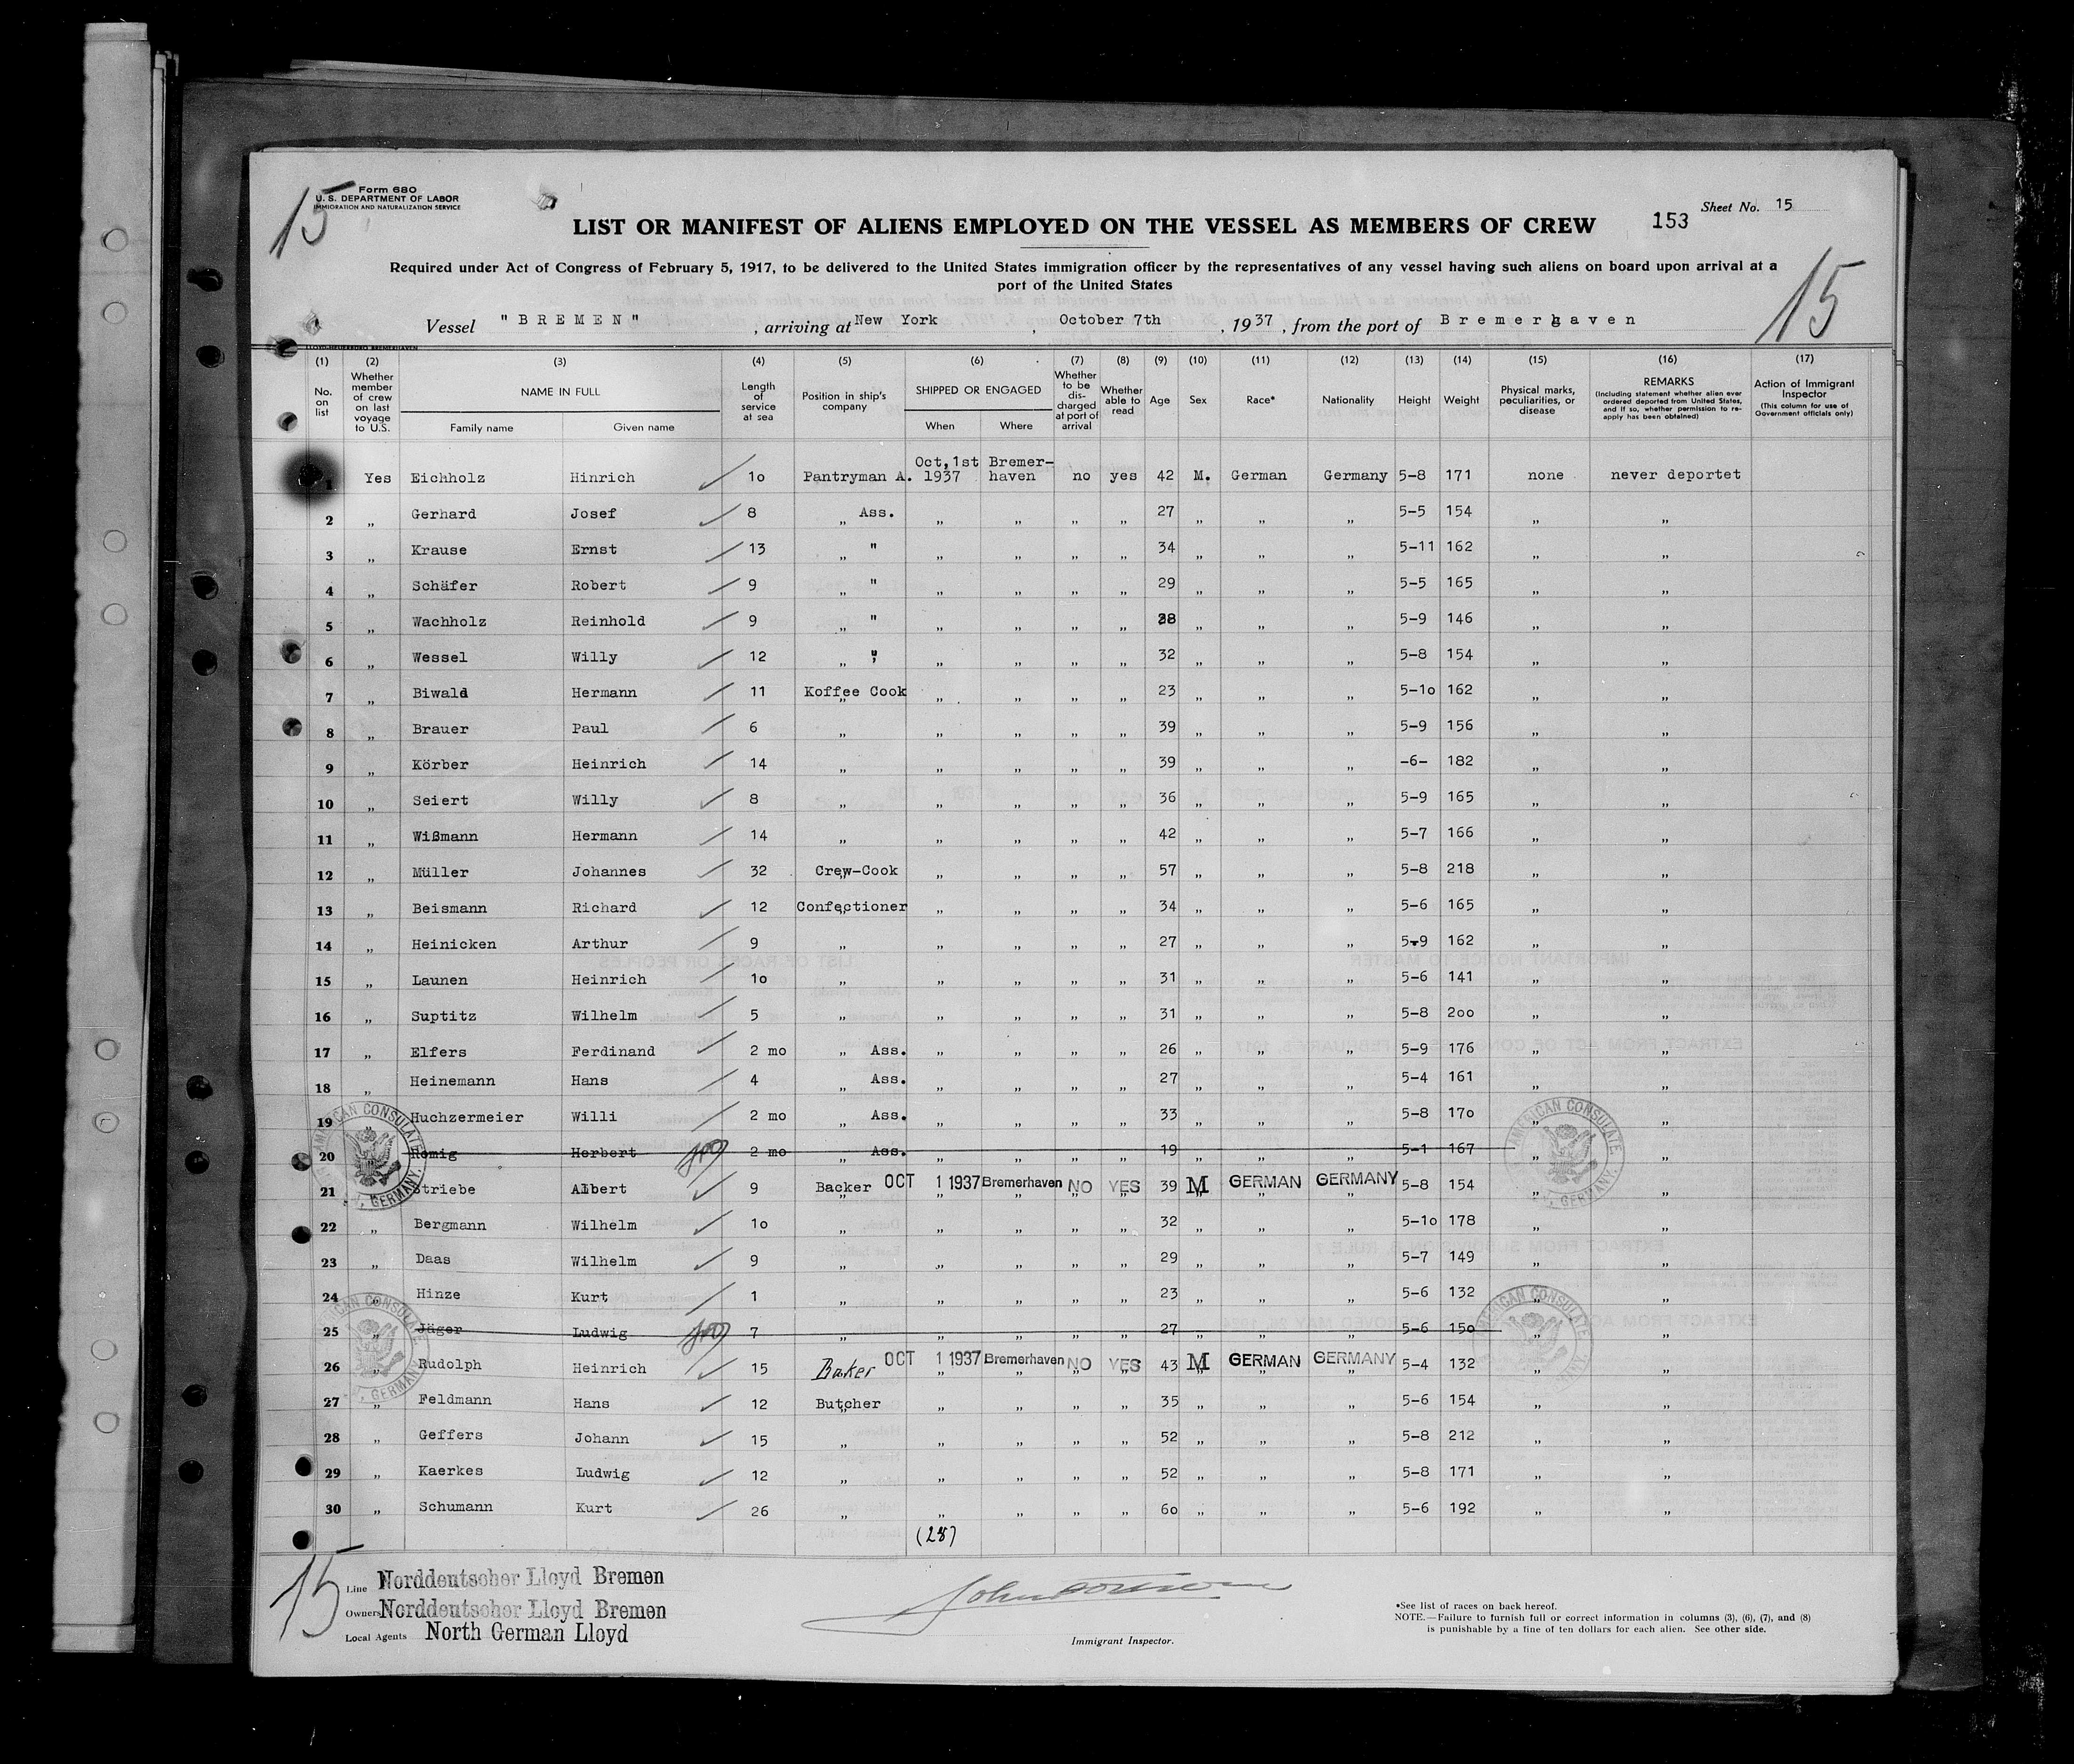 15
Form 680
U. S. DEPARTMENT OF LABOR
IMMIGRATION AND NATURALIZATION SERVICE
Sheet No. 15
LIST OR MANIFEST OF ALIENS EMPLOYED ON THE VESSEL AS MEMBERS OF CREW 153
Required under Act of Congress of February 5, 1917, to be delivered to the United States immigration officer by the representatives of any vessel having such aliens on board upon arrival at a
port of the United States
15
Vessel "BREMEN", arriving at New York, October 7th, 1937, from the port of Bremerhaven
LLOYD-HEUERBÜRO BREMERHAVEN
(1) (2) (3) (4) (5) (6) (7) (8) (9) (10) (11) (12) (13) (14) (15) (16) (17)
No. on list | Whether member of crew on last voyage to U.S. | NAME IN FULL Family name Given name | Length of service at sea | Position in ship's company | SHIPPED OR ENGAGED When Where | Whether to be discharged at port of arrival | Whether able to read | Age | Sex | Race* | Nationality | Height | Weight | Physical marks, peculiarities, or disease | REMARKS (Including statement whether alien ever ordered deported from United States, and if so, whether permission to reapply has been obtained) | Action of Immigrant Inspector (This column for use of Government officials only)
1 Yes Eichholz Hinrich 1o Pantryman A. Oct,1st 1937 Bremer-haven no yes 42 M. German Germany 5-8 171 none never deportet
2 „ Gerhard Josef 8 „ Ass. „ „ „ „ 27 „ „ „ 5-5 154 „ „
3 „ Krause Ernst 13 „ " „ „ „ „ 34 „ „ „ 5-11 162 „ „
4 „ Schäfer Robert 9 „ " „ „ „ „ 29 „ „ „ 5-5 165 „ „
5 „ Wachholz Reinhold 9 „ " „ „ „ „ 28 „ „ „ 5-9 146 „ „
6 „ Wessel Willy 12 „ " „ „ „ „ 32 „ „ „ 5-8 154 „ „
7 „ Biwald Hermann 11 Koffee Cook „ „ „ „ 23 „ „ „ 5-1o 162 „ „
8 „ Brauer Paul 6 „ „ „ „ „ 39 „ „ „ 5-9 156 „ „
9 „ Körber Heinrich 14 „ „ „ „ „ 39 „ „ „ -6- 182 „ „
10 „ Seiert Willy 8 „ „ „ „ „ 36 „ „ „ 5-9 165 „ „
11 „ Wißmann Hermann 14 „ „ „ „ „ 42 „ „ „ 5-7 166 „ „
12 „ Müller Johannes 32 Crew-Cook „ „ „ „ 57 „ „ „ 5-8 218 „ „
13 „ Beismann Richard 12 Confectioner „ „ „ „ 34 „ „ „ 5-6 165 „ „
14 „ Heinicken Arthur 9 „ „ „ „ „ 27 „ „ „ 5-9 162 „ „
15 „ Launen Heinrich 1o „ „ „ „ „ 31 „ „ „ 5-6 141 „ „
16 „ Suptitz Wilhelm 5 „ „ „ „ „ 31 „ „ „ 5-8 2oo „ „
17 „ Elfers Ferdinand 2 mo „ Ass. „ „ „ „ 26 „ „ „ 5-9 176 „ „
18 „ Heinemann Hans 4 „ Ass. „ „ „ „ 27 „ „ „ 5-4 161 „ „
19 „ Huchzermeier Willi 2 mo „ Ass. „ „ „ „ 33 „ „ „ 5-8 17o „ „
20 Romig Herbert 2 mo „ Ass. „ „ „ „ 19 „ „ „ 5-1 167 „ „
21 Striebe Albert 9 Backer OCT 1 1937 Bremerhaven NO YES 39 M GERMAN GERMANY 5-8 154 „ „
22 „ Bergmann Wilhelm 1o „ „ „ „ „ 32 „ „ „ 5-1o 178 „ „
23 „ Daas Wilhelm 9 „ „ „ „ „ 29 „ „ „ 5-7 149 „ „
24 „ Hinze Kurt 1 „ „ „ „ „ 23 „ „ „ 5-6 132 „ „
25 „ Jäger Ludwig 7 „ „ „ „ „ 27 „ „ „ 5-6 15o „ „
26 „ Rudolph Heinrich 15 Baker OCT 1 1937 Bremerhaven NO YES 43 M GERMAN GERMANY 5-4 132 „ „
27 „ Feldmann Hans 12 Butcher „ „ „ „ 35 „ „ „ 5-6 154 „ „
28 „ Geffers Johann 15 „ „ „ „ „ 52 „ „ „ 5-8 212 „ „
29 „ Kaerkes Ludwig 12 „ „ „ „ „ 52 „ „ „ 5-8 171 „ „
30 „ Schumann Kurt 26 „ „ „ „ „ 6o „ „ „ 5-6 192 „ „
(28)
AMERICAN CONSULATE GERMANY.
AMERICAN CONSULATE GERMANY.
AMERICAN CONSULATE GERMANY.
AMERICAN CONSULATE
15
Line Norddeutscher Lloyd Bremen
Owners Norddeutscher Lloyd Bremen
Local Agents North German Lloyd
Immigrant Inspector.
*See list of races on back hereof.
NOTE.—Failure to furnish full or correct information in columns (3), (6), (7), and (8)
is punishable by a fine of ten dollars for each alien. See other side.